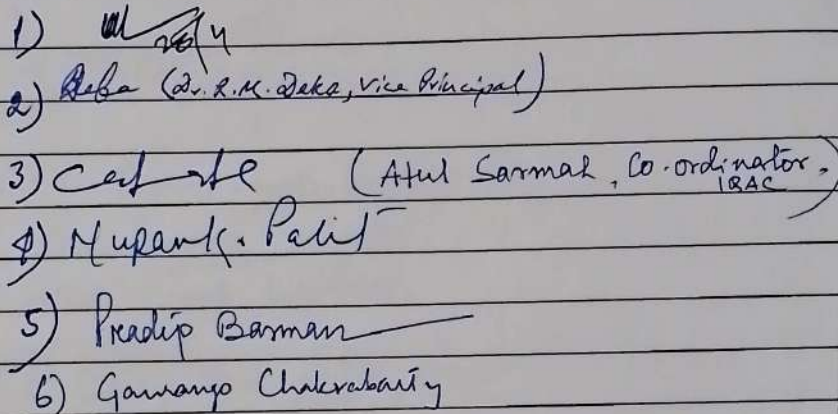 1)
2) Deka (Dr. R.M. Deka, Vice Principal)
3) (Atul Sarmah, Co-ordinator, IQAC)
4) Palit
5) Pradip Barman
6) Gaurango Chakrabarty